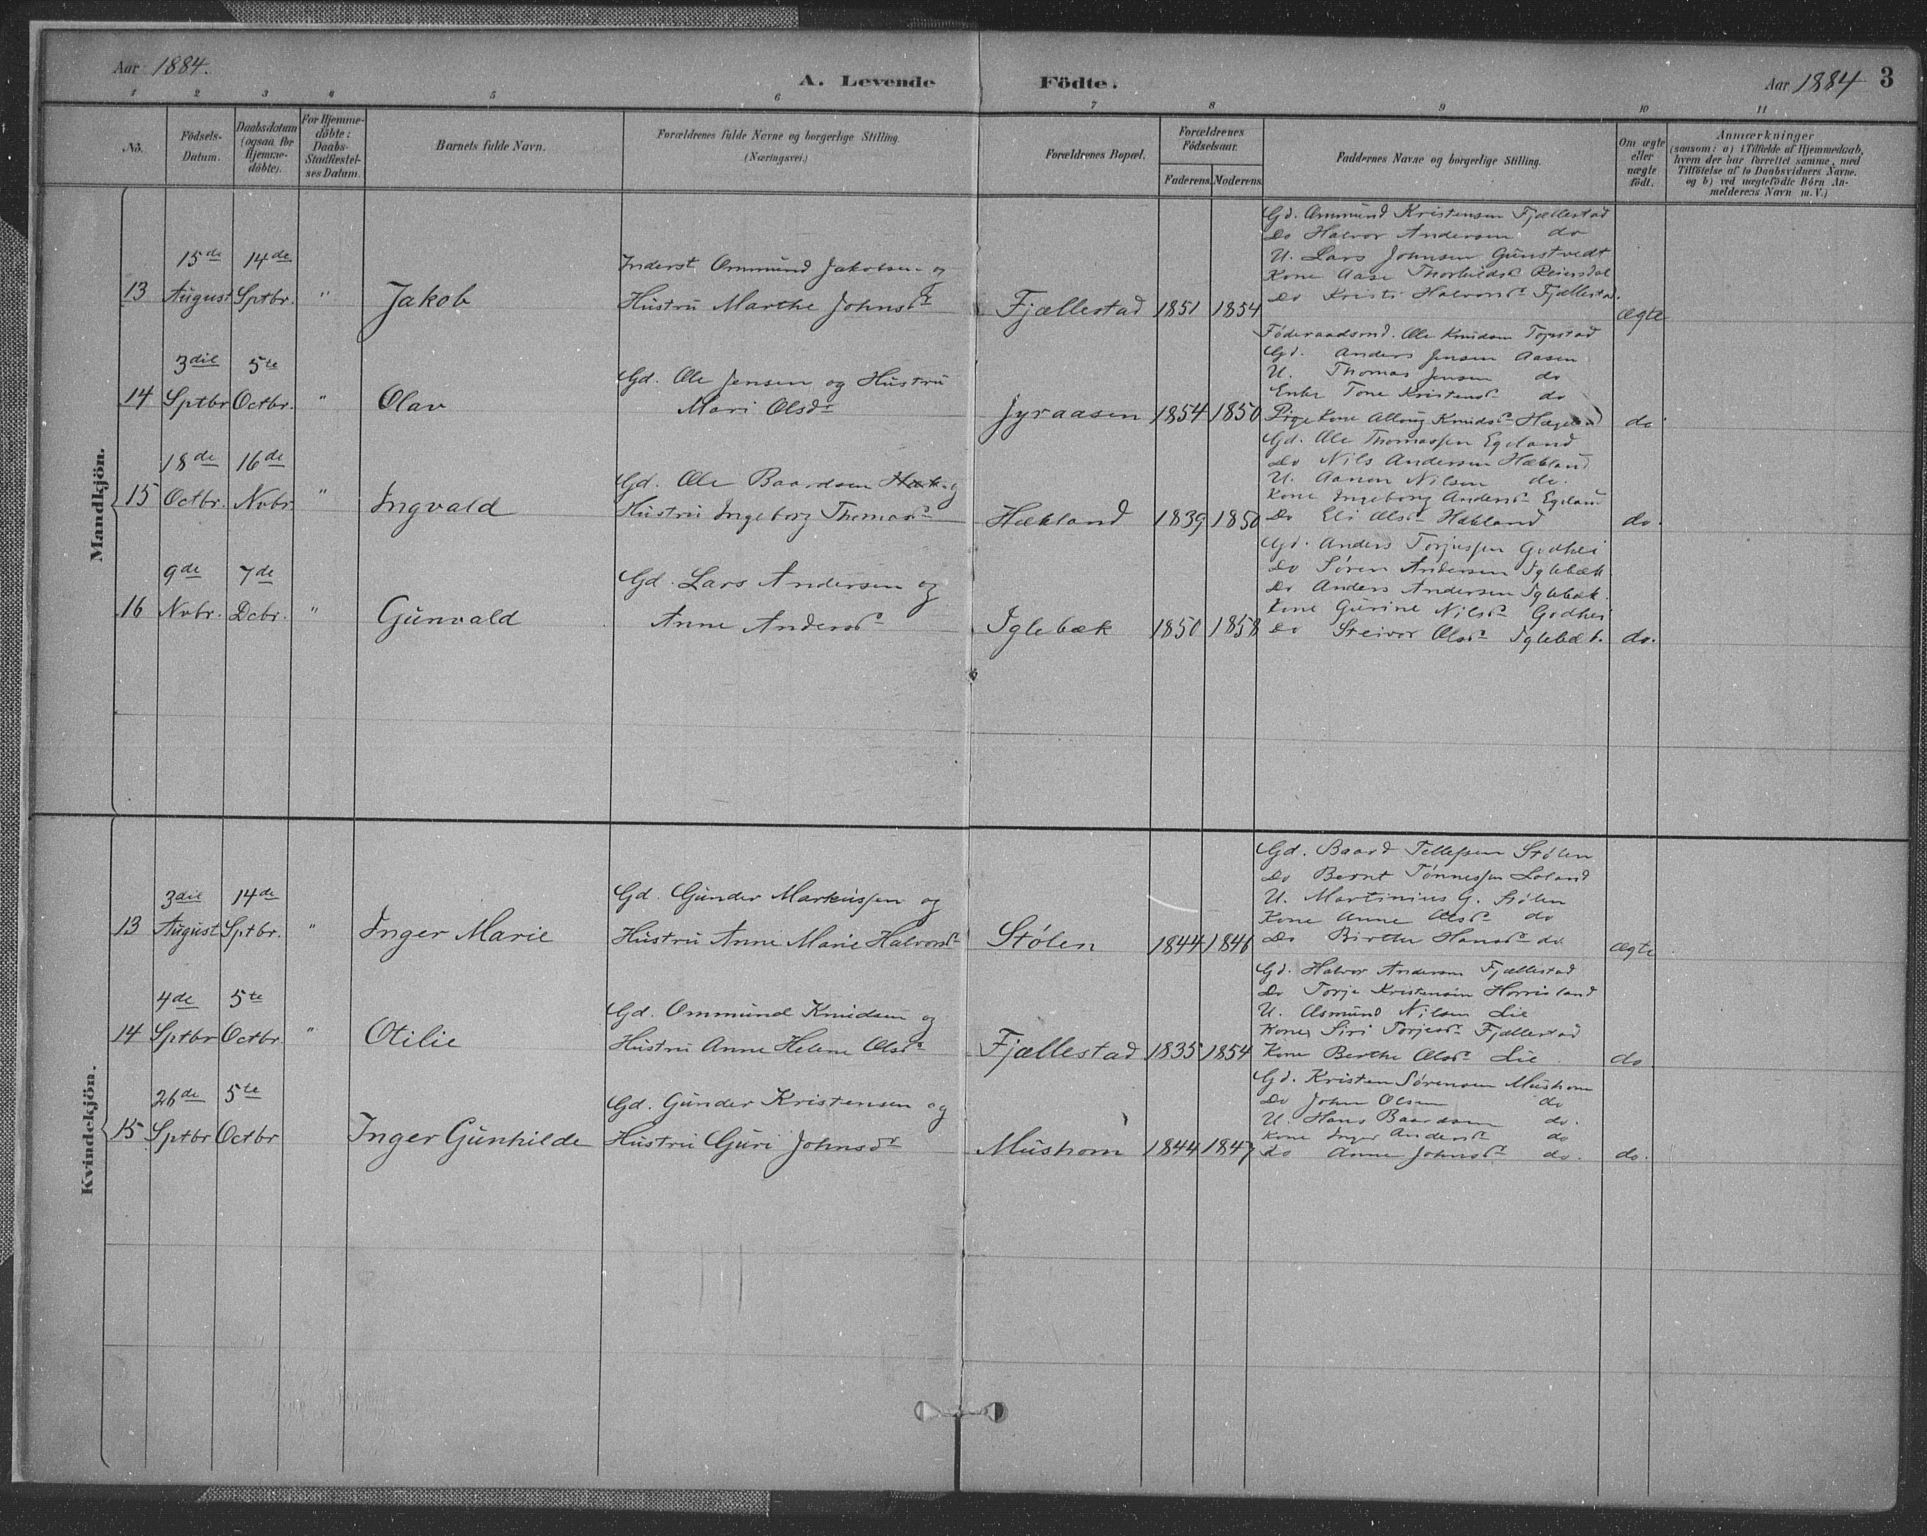 Aar 1884.
A. Levende Födte.
Aar 1884
3
1 2 3 4 5 6 7 8 9 10 11
Nô.
Födsels-Datum.
Daabsdatum (ogsaa for Hjemme-döbte).
For Hjemme-döbte: Daabs-Stadfæstel-ses Datum.
Barnets fulde Navn.
Forældrenes fulde Navne og borgerlige Stilling (Næringsvei.)
Forældrenes Bopæl.
Forældrenes Födselsaar.
Faderens. Moderens.
Faddernes Navne og borgerlige Stilling.
Om ægte eller uægte födt.
Anmærkninger
(saasom: a) i Tilfælde af Hjemmedaab, hvem der har forrettet samme, med Tilföielse af to Daabsvidners Navne. og b) ved uægtefödte Börn An-melderens Navn m. V.)
Mandkjön.
13
15de August
14de Sptbr.
"
Jakob
Inderst Ommund Jakobsen og
Hustru Marthe Johnsdr
Fjællestad
1851
1854
Gd. Ommund Kristensen Fjællestad
Do Halvor Andersen do
U. Lars Johnsen Gunstvedt
Kone Aase Thorkildsdr Reiersdal
Do Kristi Halvorsdr Fjællestad.
ægte
14
3die Sptbr
5te Octbr.
"
Olav
Gd. Ole Jensen og Hustru
Mari Olsdr
Jyraasen
1854
1850
Föderaadsmd. Ole Knudsen
Gd. Anders Jensen Aasen
U. Thomas Jensen do
Enke Tone Kristensdr do
Pige Kone Knudsdr
do
15
18de Octbr.
16de Nvbr
"
Ingvald
Gd. Ole Baardsen og
Hustru Ingeborg Thomasdr
Hækland
1839
1850
Gd. Ole Thomassen Egeland
Do Nils Andersen Hækland
U. Aanon Nilsen do.
Kone Ingeborg Andersdr Egeland
Do Eli Olsdr Hækland
do.
16
9de Nvbr.
7de Dcbr.
"
Gunvald
Gd. Lars Andersen og
Anne Andersdr
Iglebæk
1850
1858
Gd. Anders Torjussen Godhei
Do Sören Andersen Iglebæk.
Do Anders Andersen Iglebæk.
Kone Gurine Nilsdr Godhei
Do Steivor Olsdr Iglebæk.
do.
Kvindekjön.
13
3die August
14de Sptbr.
"
Inger Marie
Gd. Gunder Markussen og
Hustru Anne Marie Halvorsdr
Stølen
1844
1846
Gd. Baard Tellefsen Stølen
Do Bernt Tønnessen Loland
U. Martinius G. Stølen
Kone Anne Olsdr do
Do Birthe Hansdr do
ægte
14
4de Sptbr
5te Octbr.
"
Otilie
Gd. Ommund Knudsen og
Hustru Anne Helene Olsdr
Fjællestad
1835
1854
Gd. Halvor Andersen Fjællestad
Do Torje Kristensen Horrisland
U. Asmund Nilsen Lie
Kone Siri Torjesdr Fjællestad
Kone Berthe Olsdr Lie
do
15
26de Sptbr
5te Octbr
Inger Gunhilde
Gd. Gunder Kristensen og
Hustru Guri Johnsdr
Mushom
1844
1847
Gd. Kristen Sørensen Mushom
Do John Olsen do
U. Hans Baardsen do.
Kone Inger Andersdr do
Do Anne Johnsdr do.
do.